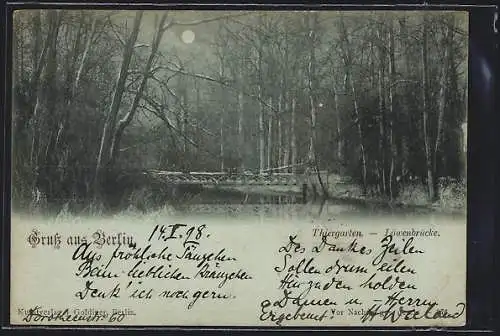 Gruß aus Berlin.
Thiergarten. — Löwenbrücke.
14. 98.
Aus fröhliche Tänzchen
Beim lieblichen Kränzchen
Denk' ich noch gern.
Des Dankes Zeilen
Sollen drum eilen
holden
Damen u. Herrn
Ergebenst
Kunstverlag J. Goldiner, Berlin.
Dorotheenstr. 60
Vor Nach